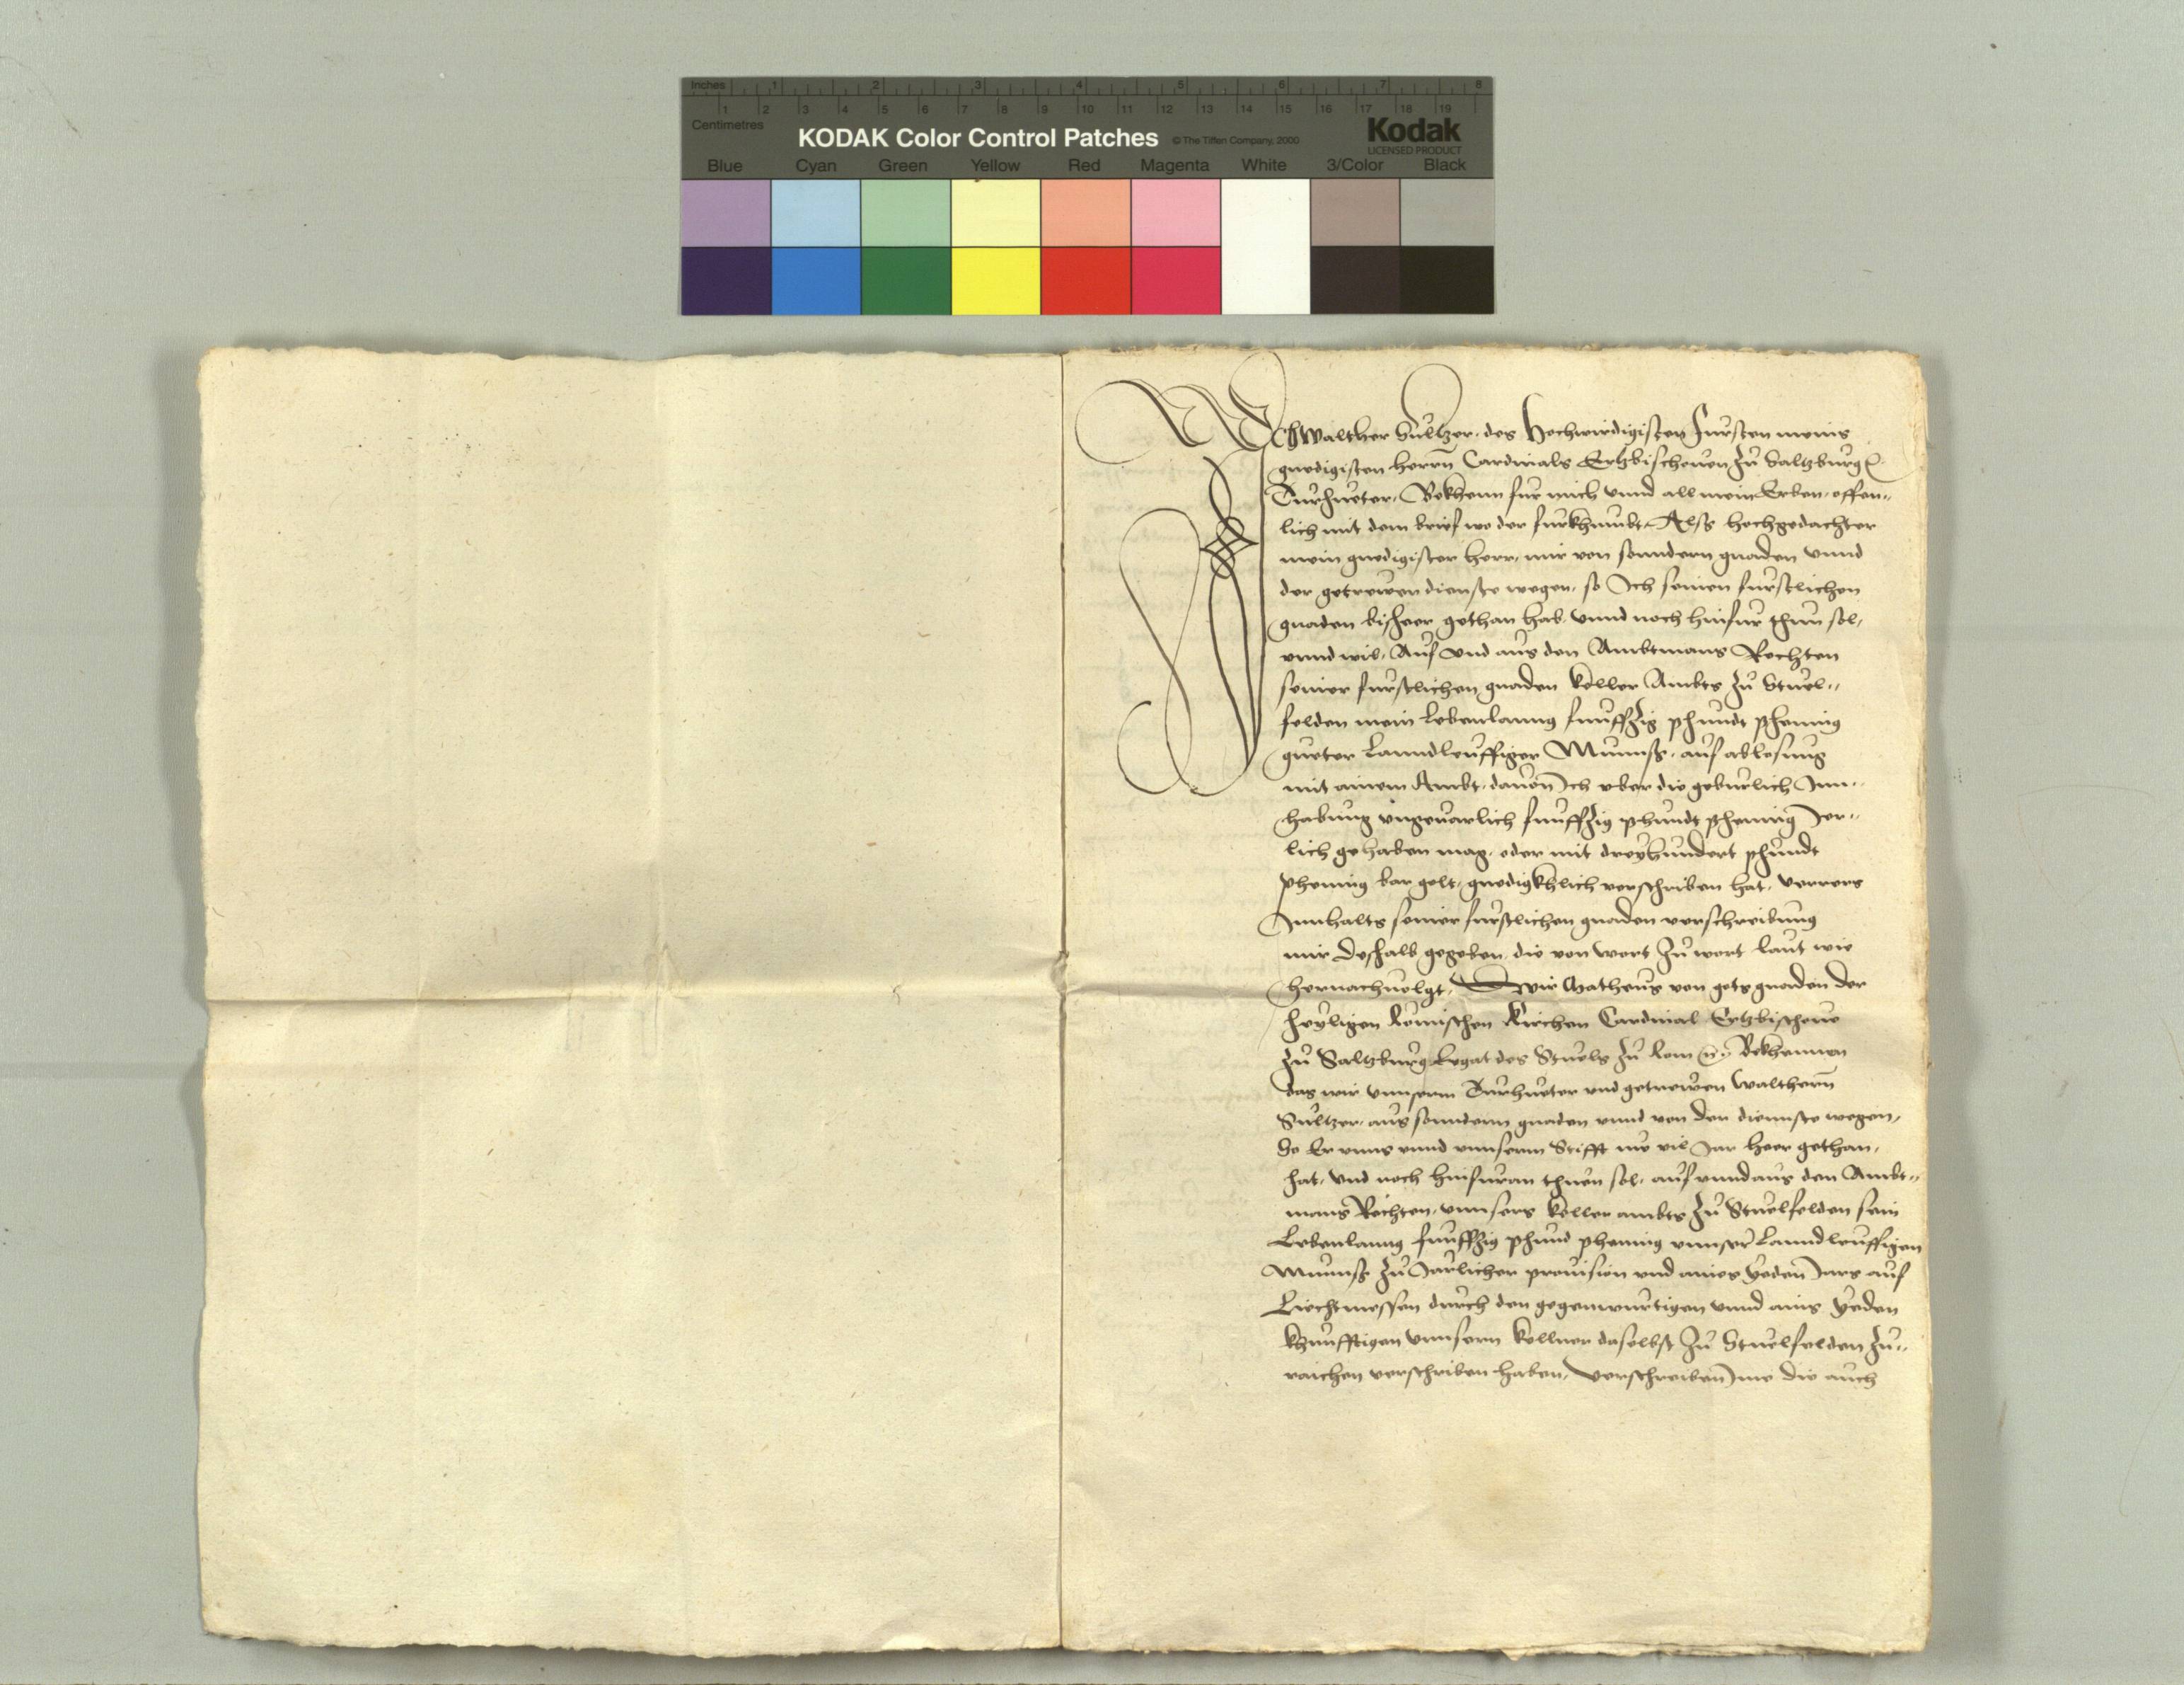 Inches 1 2 3 4 5 6 7 8
1 2 3 4 5 6 7 8 9 10 11 12 13 14 15 16 17 18 19
Centimetres
KODAK Color Control Patches © The Tiffen Company, 2000 Kodak
LICENSED PRODUCT
Blue Cyan Green Yellow Red Magenta White 3/Color Black
Ich Walther Sultzer, des Hochwirdigisten Fursten meins
gnedigisten herrn̄ Cardinals Ertzbischouen zu Saltzburg
Turhueter, Bekhenn fur mich vnnd all mein Erben, offen„
lich mit dem brief wo der furkhumbt, Alss hochgedachter
mein gnedigister herr, mir von sonndern gnaden vnnd
der getrewen dienste wegen, so Ich seinen furstlichen
gnaden bisheer gethan hab, vnnd noch hinfur thun sol,
vnnd wil, Auf vnd aus den Ambtmans Rechten
seiner furstlichen gnaden keller Ambts zu Stuel„
felden mein lebenlanng funffzig phundt phening
gueter lanndleuffiger Munnss, auf ablosung
mit ainem Ambt, dauon Ich vber die geburlich Inn„
habung vngeuarlich funffzig phundt phening Jer„
lich gehaben mag, oder mit dreyhundert phundt
phening bar gelt, gnedigkhlich verschriben hat, verrers
Innhalts seiner furstlichen gnaden verschreibung
mir deshalb gegeben, die von wort zu wort laut wie
hernachuolgt, Wir Matheus von gots gnaden der
heyligen Römischen kirchen Cardinal Ertzbischoue
zu Saltzburg Legat des Stuels zu Rom Bekhennen
das wir vnnserm Turhueter vnd getrewen Walthern̄
Sultzer, aus sonndern gnaden vnnd von der diennste wegen,
So Er vnns vnnd vnnserm Stifft nu vil Jar heer gethan,
hat, vnd noch hinfuran thuen sol, auf vnnd aus den Ambt„
mans Rechten, vnnsers keller ambts zu Stuelfelden sein
Lebenlanng funffzig phund phening vnnser lanndleuffigen
Munnss zu Jarlicher prouision vnd aines yeden Jars auf
Liechtmessen durch den gegenwurtigen vnnd ains yeden
khunfftigen vnnsern kellner daselbst zu Stuelfelden zu„
raichen verschriben haben, Verschreiben Ime die auch